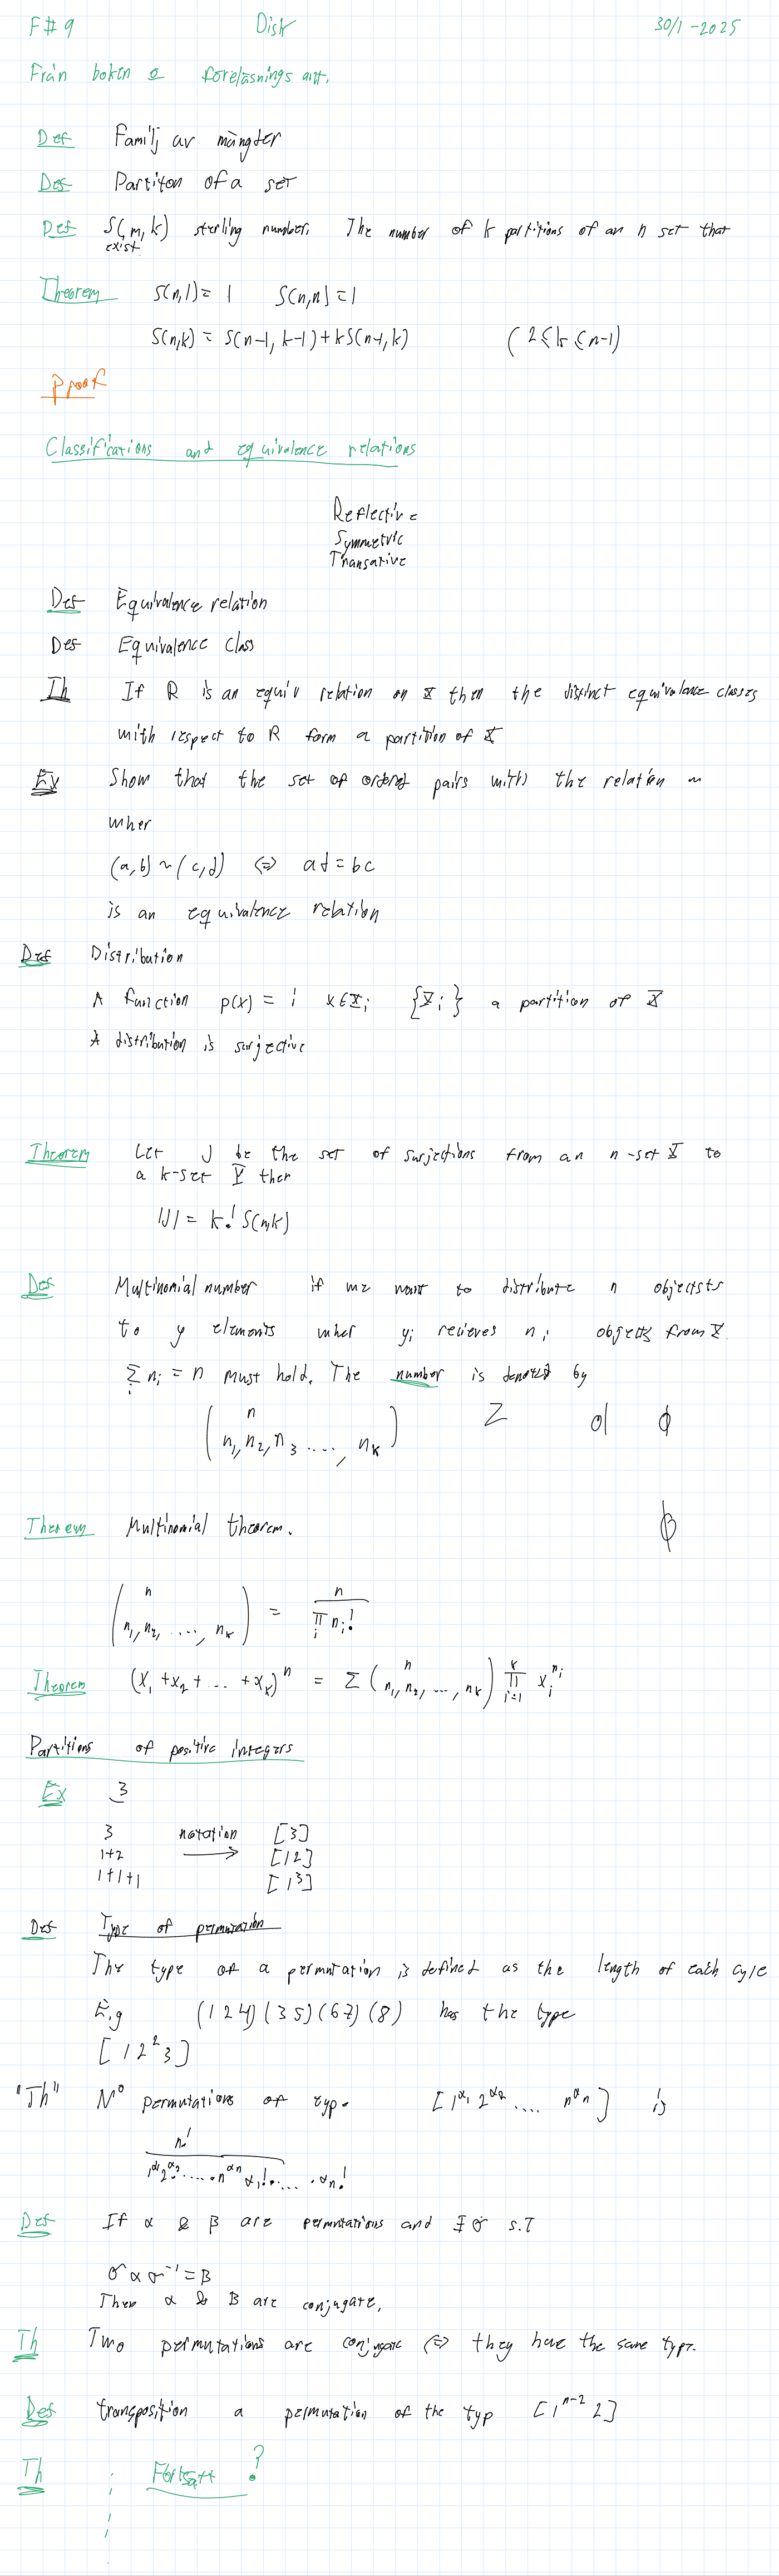 F#9 Disk 30/1-2025
Från boken & föreläsnings ant.
Def Familj av mängder
Def Partiton of a set
Def S(n,k) sterling number. The number of k partitions of an n set that
exist
Theorem S(n,1)=1 S(n,n)=1
S(n,k) = S(n-1, k-1)+kS(n-1,k) (2≤k≤n-1)
Proof
Classifications and equivalence relations
Reflective
Symmetric
Transative
Def Equivalence relation
Def Equivalence class
Th If R is an equiv relation on X then the distinct equivalence classes
with respect to R form a partition of X
Ex Show that the set of ordered pairs with the relation ~
wher
(a,b)~(c,d) ⇔ ad=bc
is an equivalence relation
Def Distribution
A function p(x) = i x∈X_i {X_i} a partition of X
A distribution is surjective
Theorem Let J be the set of surjections from an n-set X to
a k-set Y then
|J| = k! S(n,k)
Def Multinomial number if we want to distribute n objectsts
to y elements wher y_i recieves n_i objects from X.
∑_i n_i = n must hold. The number is denoted by
(n
n_1, n_2, n_3 ...., n_k) Z ol ϕ
Theorem Multinomial theorem. ϕ
(n
n_1, n_2, ...., n_k) = n / ∏_i n_i!
Theorem (x_1 + x_2 + ... + x_k)^n = ∑ (n
n_1, n_2, ..., n_k) ∏_{i=1}^k x_i^{n_i}
Partitions of positive integers
Ex 3
3 notation [3]
1+2 → [12]
1+1+1 [1^3]
Def Type of permutation
The type of a permutation is defined as the length of each cycle
E.g (124)(35)(67)(8) has the type
[12^2 3]
"Th" N° permutations of typ. [1^{α_1} 2^{α_2} .... n^{α_n}] is
n! / 1^{α_1} 2^{α_2} · .... · n^{α_n} α_1! · .... · α_n!
Def If α & β are permutations and ∃ σ s.T
σ α σ^{-1} = β
Then α & β are conjugate.
Th Two permutations are conjugate ⇔ they have the same type.
Def transposition a permutation of the typ [1^{n-2} 2]
Th Fortsatt ?